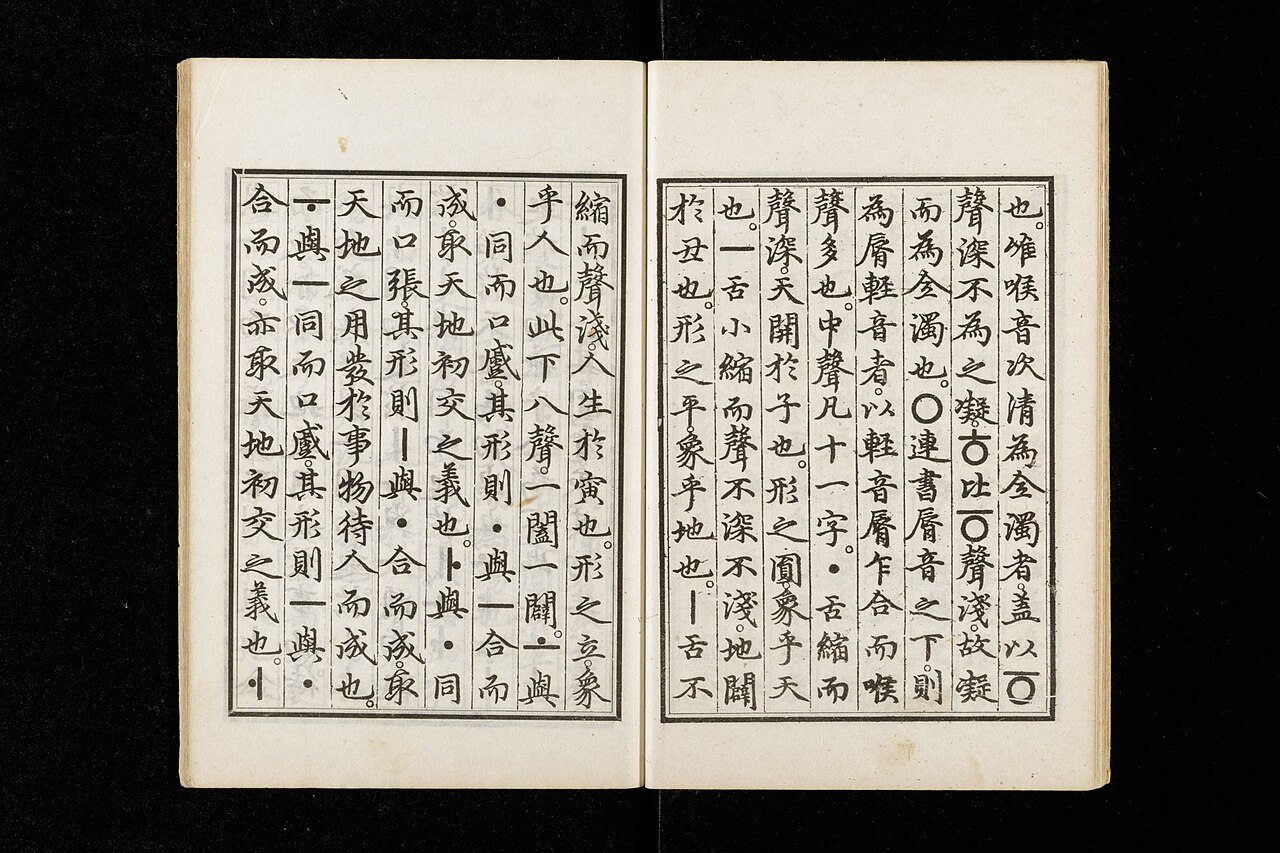 也。唯喉音次清為全濁者。盖以ㆆ
聲深不為之凝。ㅎ比ㆆ聲淺。故凝
而為全濁也。ㅇ連書脣音之下。則
為脣軽音者。以軽音脣乍合而喉
聲多也。中聲凡十一字。ㆍ舌縮而
聲深。天開於子也。形之圎。象乎天
也。ㅡ舌小縮而聲不深不淺。地闢
於丑也。形之平。象乎地也。ㅣ舌不
縮而聲淺。人生於寅也。形之立。象
乎人也。此下八聲。一闔一闢。ㅗ與
ㆍ同而口蹙。其形則ㆍ與ㅡ合而
成。取天地初交之義也。ㅏ與ㆍ同
而口張。其形則ㅣ與ㆍ合而成。取
天地之用發於事物待人而成也。
ㅜ與ㅡ同而口蹙。其形則ㅡ與ㆍ
合而成。亦取天地初交之義也。ㅓ